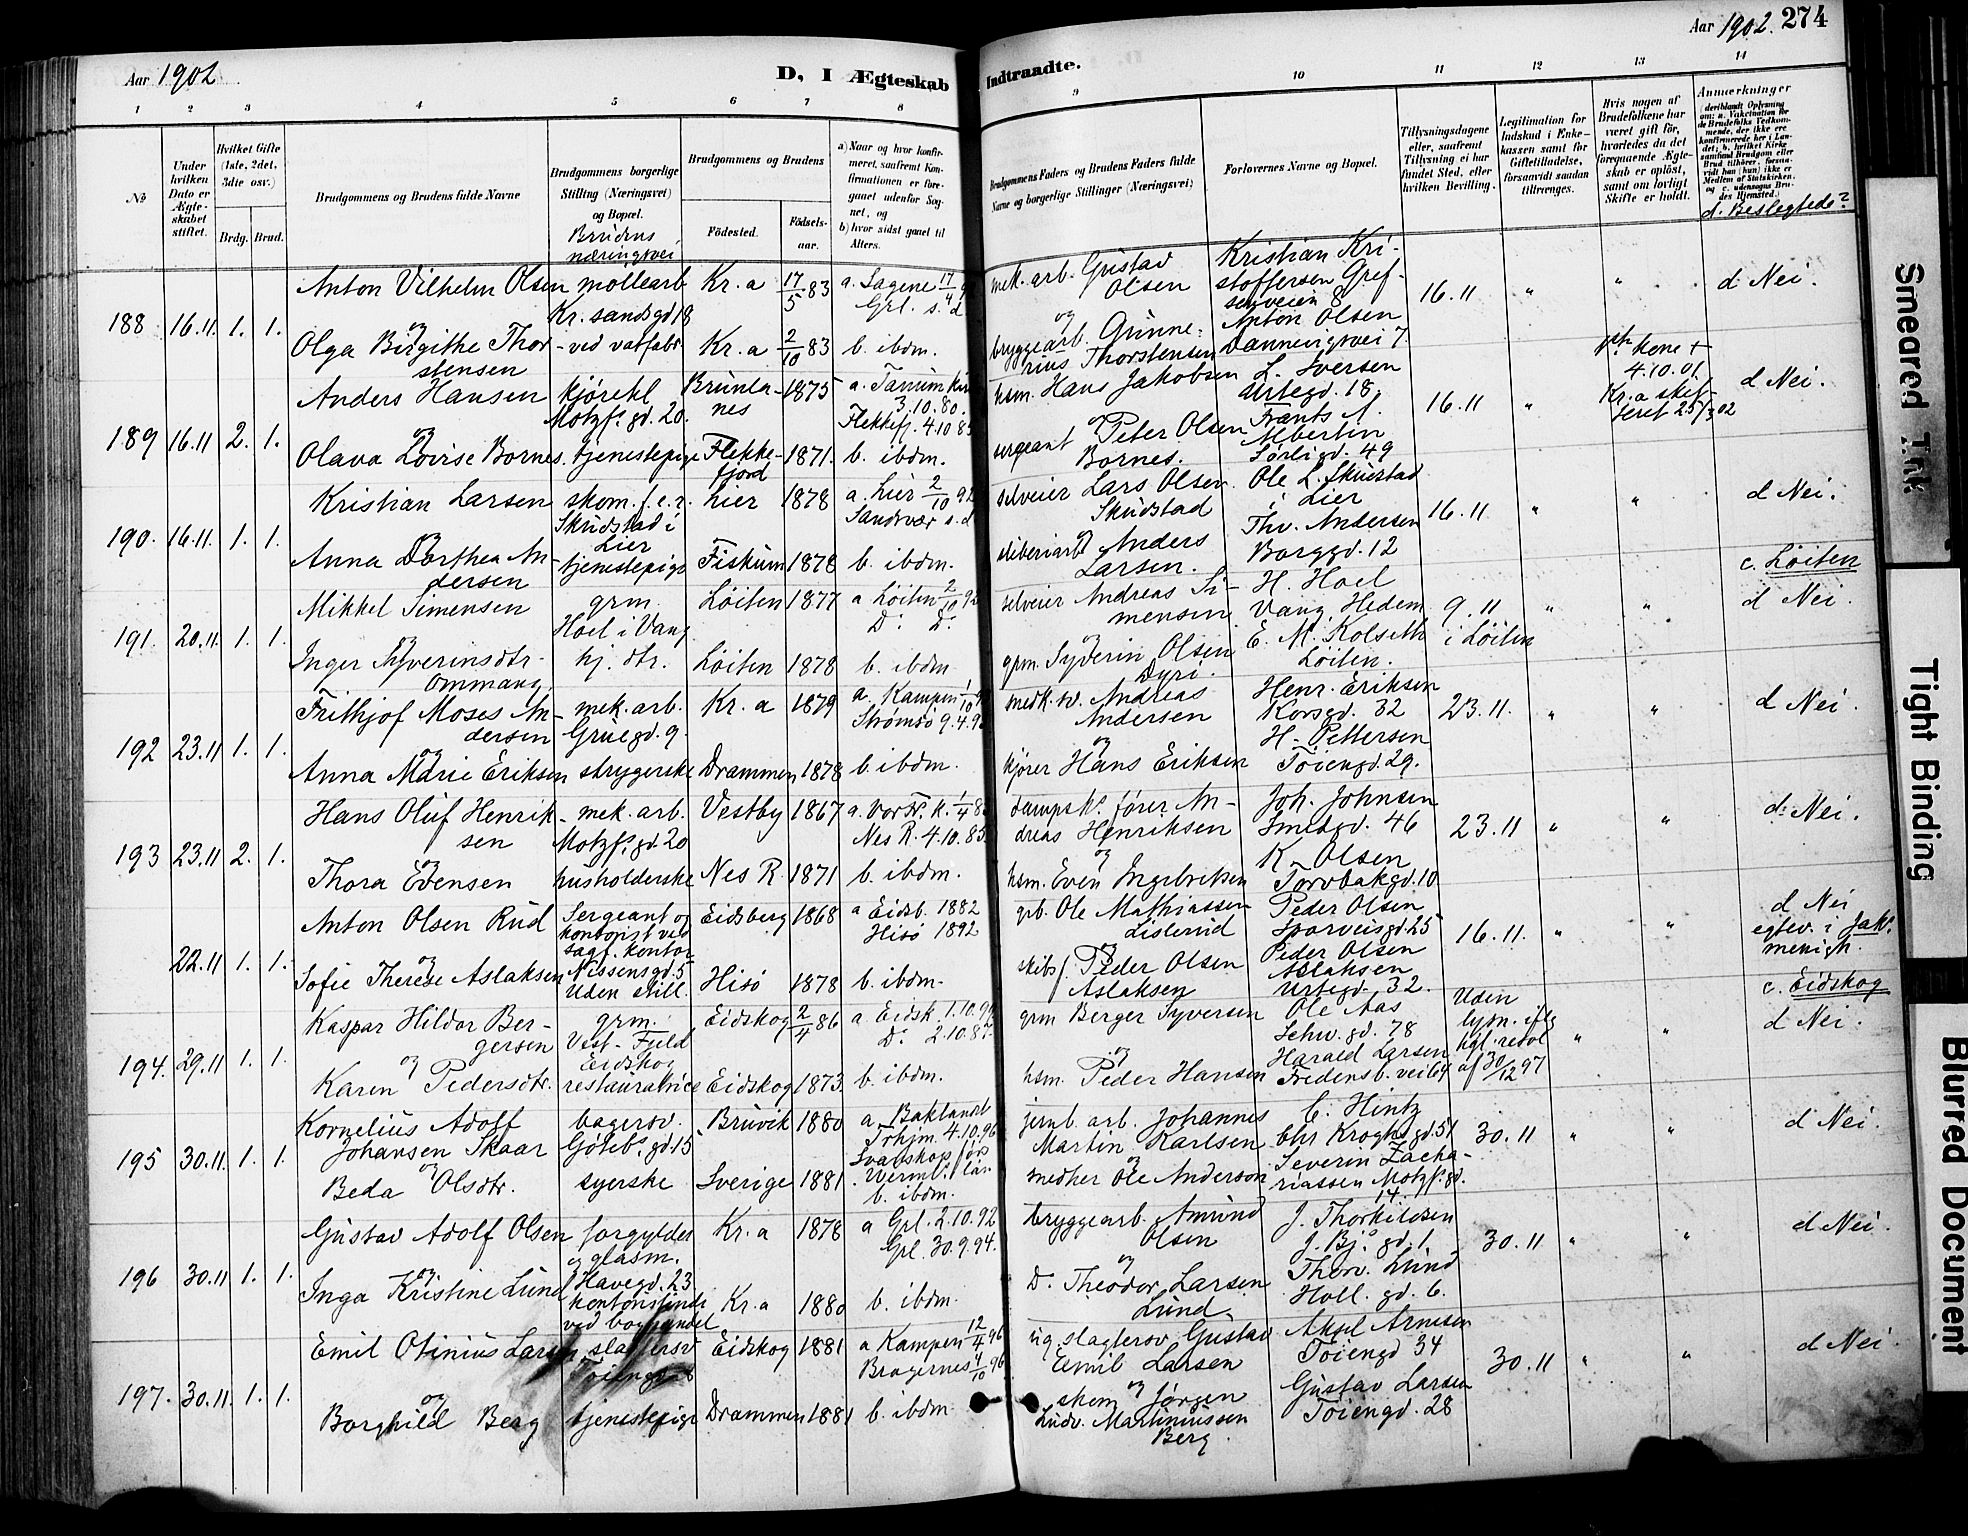 Aar 1902
D, I Ægteskab
Indtraadte.
Aar 1902. 274
1 2 3 4 5 6 7 8
9 10 11 12 13 14
No
Under hvilken Dato er Ægteskabet stiftet.
Hvilket Gifte (1ste, 2det, 3die osv.)
Brdg. Brud.
Brudgommens og Brudens fulde Navne
Brudgommens borgerlige Stilling (Næringsvei) og Bopæl.
Brudens næringsvei
Brudgommens og Brudens
Födested. Födselsaar.
a) Naar og hvor konfirmeret, saafremt Konfirmationen er foregaaet udenfor Sognet, og
b) hvor sidst gaaet til Alters.
Brudgommens Faders og Brudens Faders fulde Navne og borgerlige Stillinger (Næringsvei)
Forlovernes Navne og Bopæl.
Tillysningsdagene eller, saafremt Tillysning ei har fundet Sted, efter hvilken Bevilling.
Legitimation for Indskud i Enkekassen samt for Giftetilladelse, forsaavidt saadan tiltrænges.
Hvis nogen af Brudefolkene har været gift för, hvorledes da det foregaaende Ægteskab er oplöst, samt om lovligt Skifte er holdt.
Anmærkninger
(deriblandt Oplysning om: a. Vakcination for de Brudefolks Vedkommende, der ikke ere konfirmerede her i Landet; b. hvilket Kirkesamfund Brudgom eller Brud tilhörer, forsaavidt han (hun) ikke er Medlem af Statskirken, og c. udensogns Brudes Hjemsted.)
d. Beslegtede?
188 16.11. 1. 1.
Anton Vilhelm Olsen møllearb Kr. sandsgd 18 Kr. a 17/5 83 a. Sagene 17/4
Grl. s. d
mek. arb. Gustav Olsen Kristian Kristoffersen Grefsenveien 8 16.11 " " d Nei.
og
Olga Birgithe Thorstensen - ved vatfabr. Kr. a 2/10 83 b. ibdm.
bryggearb. Gunnerius Thorstensen Anton Olsen Dannevigsvei 7.
189 16.11 2. 1.
Anders Hansen kjørekl Motzf.s gd. 20. Brunlanes 1875 a. Tanum kirke 3.10.80. Flekkefj. 4.10 85
hsm. Hans Jakobsen L. Iversen Urtegd. 18 16.11 " 1ste kone + 4.10.01 Kr.a skifteret 25/3 02 d Nei.
og
Olava Lovise Bornes. tjenestepige Flekkefjord 1871. b. ibdm.
sergeant Peter Olsen Bornes. Frants A. Albertin Sørligd. 49
190. 16.11. 1. 1.
Kristian Larsen skom. f. e. r. Skudstad i Lier Lier 1878 a. Lier 2/10 92 Sandsvær s. d
selveier Lars Olsen Skudstad Ole L. Skudstad i Lier 16.11 " " d Nei.
og
Anna Dorthea Andersen tjenestepige Fiskum 1878 b. ibdm.
sliberiarb Anders Larsen. Thv. Andersen Borggd. 12
191. 20.11. 1. 1.
Mikkel Simensen grm. Hoel i Vang Løiten 1877 a Løiten 2/10 92 D. D.
selveier Andreas Simensen H. Hoel Vang Hedem 9.11 i Løiten " " c. Løiten d Nei.
og
Inger Syverinsdtr. Ommang hj. dtr. Løiten 1878 b. ibdm
grm. Syverin Olsen Dyri. E. M. Kolseth Løiten.
192 23.11 1. 1.
Frithjof Moses Andersen mek. arb. Grüegd. 9. Kr. a 1879 a. Kampen 1/10 Strømsø 9.4.9
medk. sv. Andreas Andersen Henr. Eriksen Korsgd. 32 23.11. " " d Nei.
og
Anna Marie Eriksen strygerske Drammen 1878 b. ibdm.
kjører Hans Eriksen H. Pettersen Tøiengd. 29.
193 23.11 2. 1.
Hans Oluf Henriksen mek. arb. Motzf.s gd. 20 Vestby 1867 a. Vor Fr. K. 1/4 8 Nes R. 4.10.85
dampsk.s fører Andreas Henriksen Joh. Johnsen Smedgd. 46 23.11 " " d. Nei.
og
Thora Evensen husholderske Nes R 1871 b. ibdm.
hsm. Even Ingebriksen K. Olsen Torvbakgd. 10
22.11 1. 1.
Anton Olsen Rud Sergeant og kontorist ved sagf. kontor Nissensgd. 5 Eidsberg 1868 a Eidsb. 1882 Hisø 1892
grb. Ole Mathiassen Lislerud Peder Olsen Sporveisgd. 25 16.11. " " d Nei egtev. i Jak.s menigh.
og
Sofie Therese Aslaksen Uden still. Hisø 1878 b. ibdm.
skibsf. Peder Olsen Aslaksen Peder Olsen Aslaksen Urtegd. 32.
194. 29.11 1. 1.
Kaspar Hildor Bergersen grm. Vest-Fjeld Eidskog Eidskog 2/4 86 a. Eidsk. 1.10.9 D. 2.10.87.
grm Berger Syversen Ole Aas Schw. gd. 78 Uden lysn. iflg kgl. resol af 30/12 97 " " c. Eidskog d Nei.
og
Karen Pedersdtr. restauratrice Eidskog 1873 b. ibdm.
hsm. Peder Hansen Harald Larsen Fredensb. vei 64
195 30.11. 1. 1.
Kornelius Adolf Johansen Skaar bagersv. Gøteb.s gd. 15 Bruvik 1880 a. Baklandet Trhjm. 4.10.96
jernb. arb. Johannes Martin Karlsen C. Hintz Chr Kroghs gd. 51 30.11 " " d Nei.
og
Beda Olsdtr. syerske Sverige 1881 Svanskog Vermls. län b. ibdm.
smedher Ole Anderson Severin Zachariassen Motzf.s gd. 14.
196 30.11 1. 1.
Gustav Adolf Olsen forgylder og glasm. Havegd. 23 Kr. a 1878 a Grl. 2.10.92 Grl. 30.9.94.
bryggearb. Amund Olsen J. Thorkildsen J. Bj.s gd. 1. 30.11 " " d Nei.
og
Inga Kristine Lund kontorist ved boghandel Kr. a 1880 b. ibdm.
D. Theodor Larsen Lund Thorv. Lund Holl. gd. 6.
197. 30.11. 1. 1.
Emil Otinius Larsen slagtersv Tøiengd. Eidskog 1881 a Kampen 12/4 96 Bragernes 4/10 96
slagtersv. Gustav Emil Larsen Aksel Arnesen Tøiengd 34 30.11 " " d Nei.
og
Borghild Berg tjenestepige Drammen 1881 b. ibdm
skom Jørgen Ludv. Martiniussen Berg. Gustav Larsen Tøiengd. 28
Smeared Ink
Tight Binding
Blurred Document